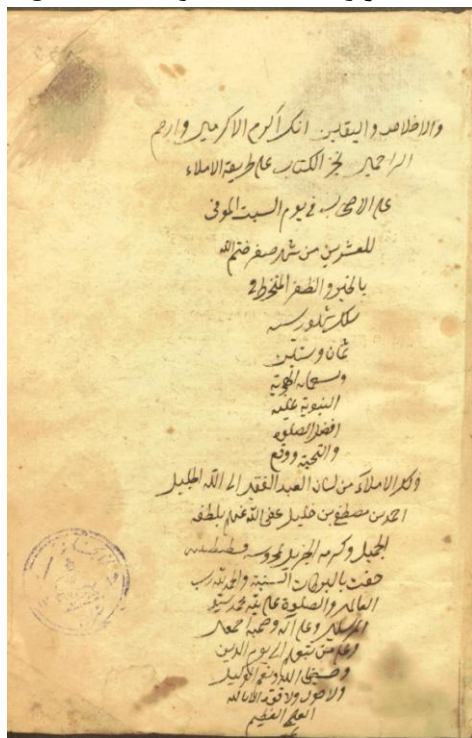 والاخلاص واليقين انك اكرم الاكرمين وارحم
الراحمين نجز الكتاب على طريقة الاملاء
على الاصحاب في يوم السبت الموفى
للعشرين من شهر صفر ختم الله
بالخير والظفر المنخرط في
سلك شهور سنه
ثمان وستين
وتسعمائه الهجرية
النبوية عليه
افضل الصلوة
والتحية ووقع
ذلك الاملاء من لسان العبد الفقير الى الله الجليل
احمد بن مصطفى بن خليل عفى الله عنهم بلطفه
الجميل وكرمه الجزيل بمحروسه قسطنطينيه
حفت بالبركات السنية والحمد لله رب
العالمين والصلوة على نبيه محمد سيد
المرسلين وعلى اله وصحبه اجمعين
وعلى من تبعهم الى يوم الدين
وحسبنا الله ونعم الوكيل
ولا حول ولا قوة الا بالله
العلي العظيم